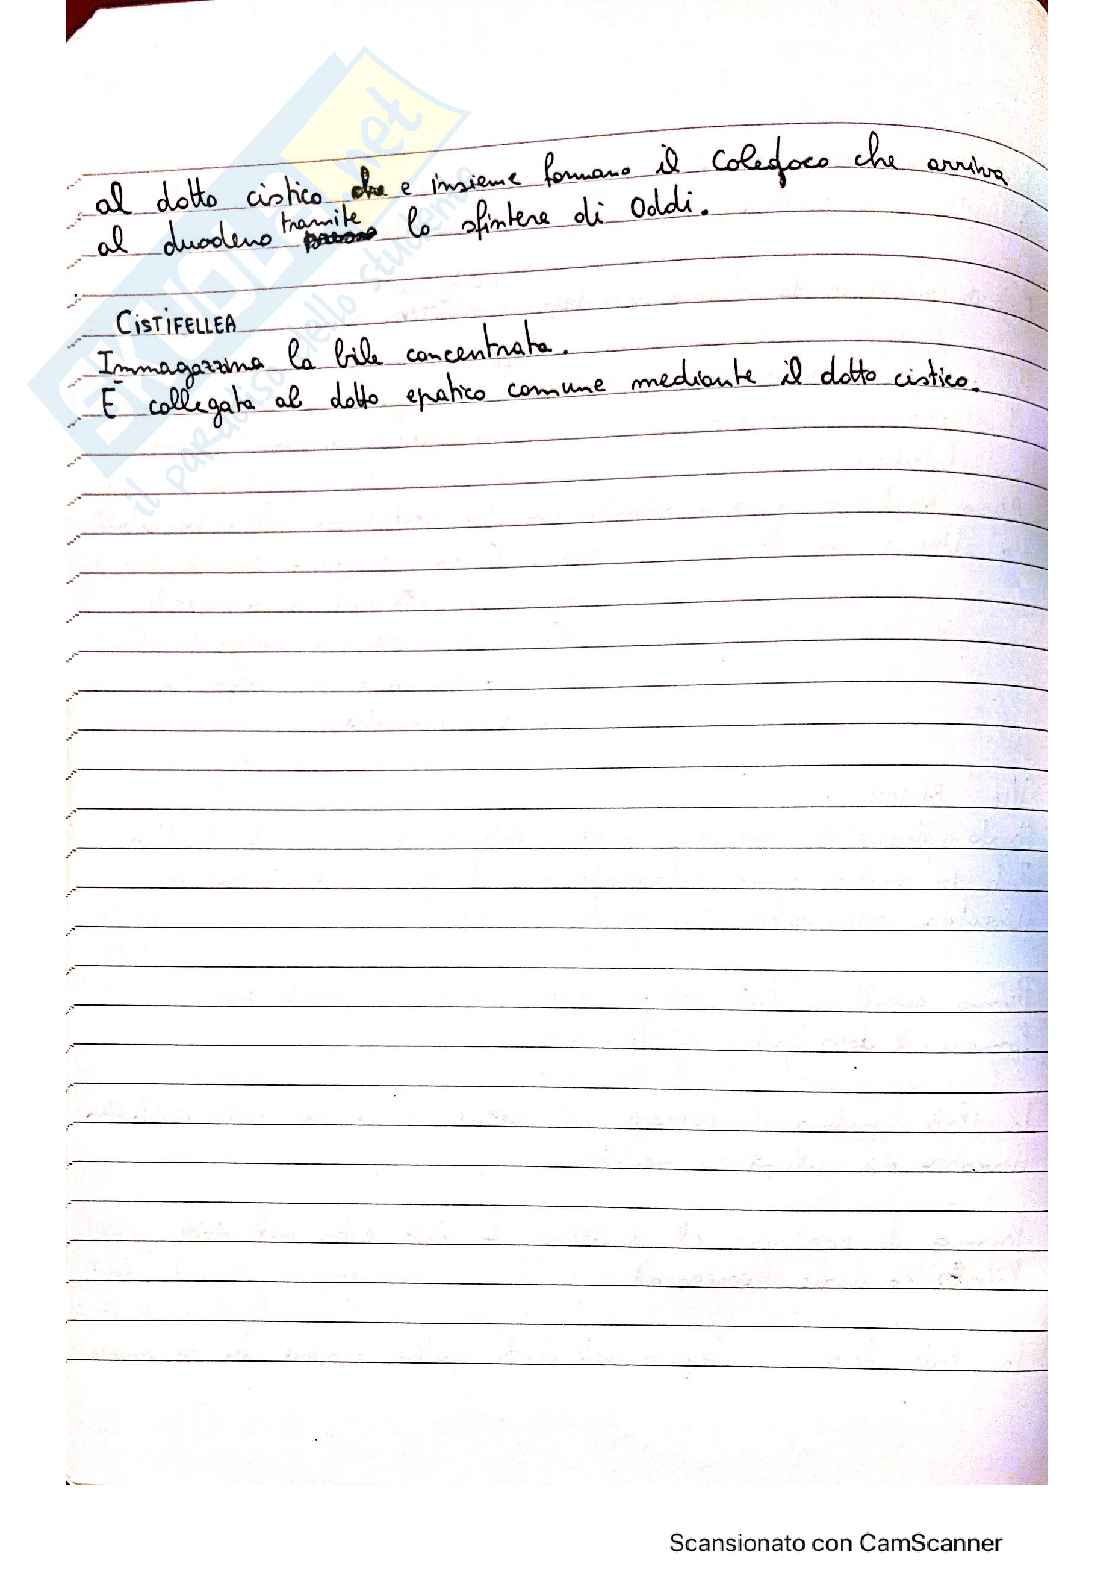 al dotto cistico che e insieme formano il Coledoco che arriva
al duodeno tramite lo sfintere di Oddi.
CISTIFELLEA
Immagazzina la bile concentrata.
È collegata al dotto epatico comune mediante il dotto cistico.
SKUOLA.net
il paradiso dello studente
Scansionato con CamScanner